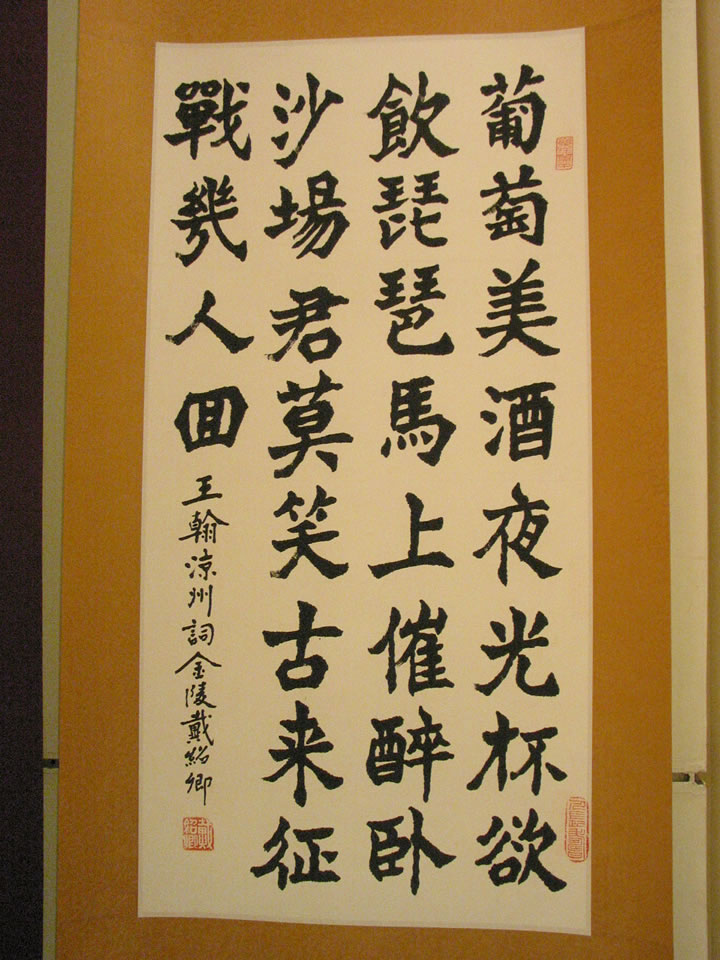 葡萄美酒夜光杯欲
飲琵琶馬上催醉卧
沙場君莫笑古来征
戰幾人回
王翰涼州詞金陵戴紹卿